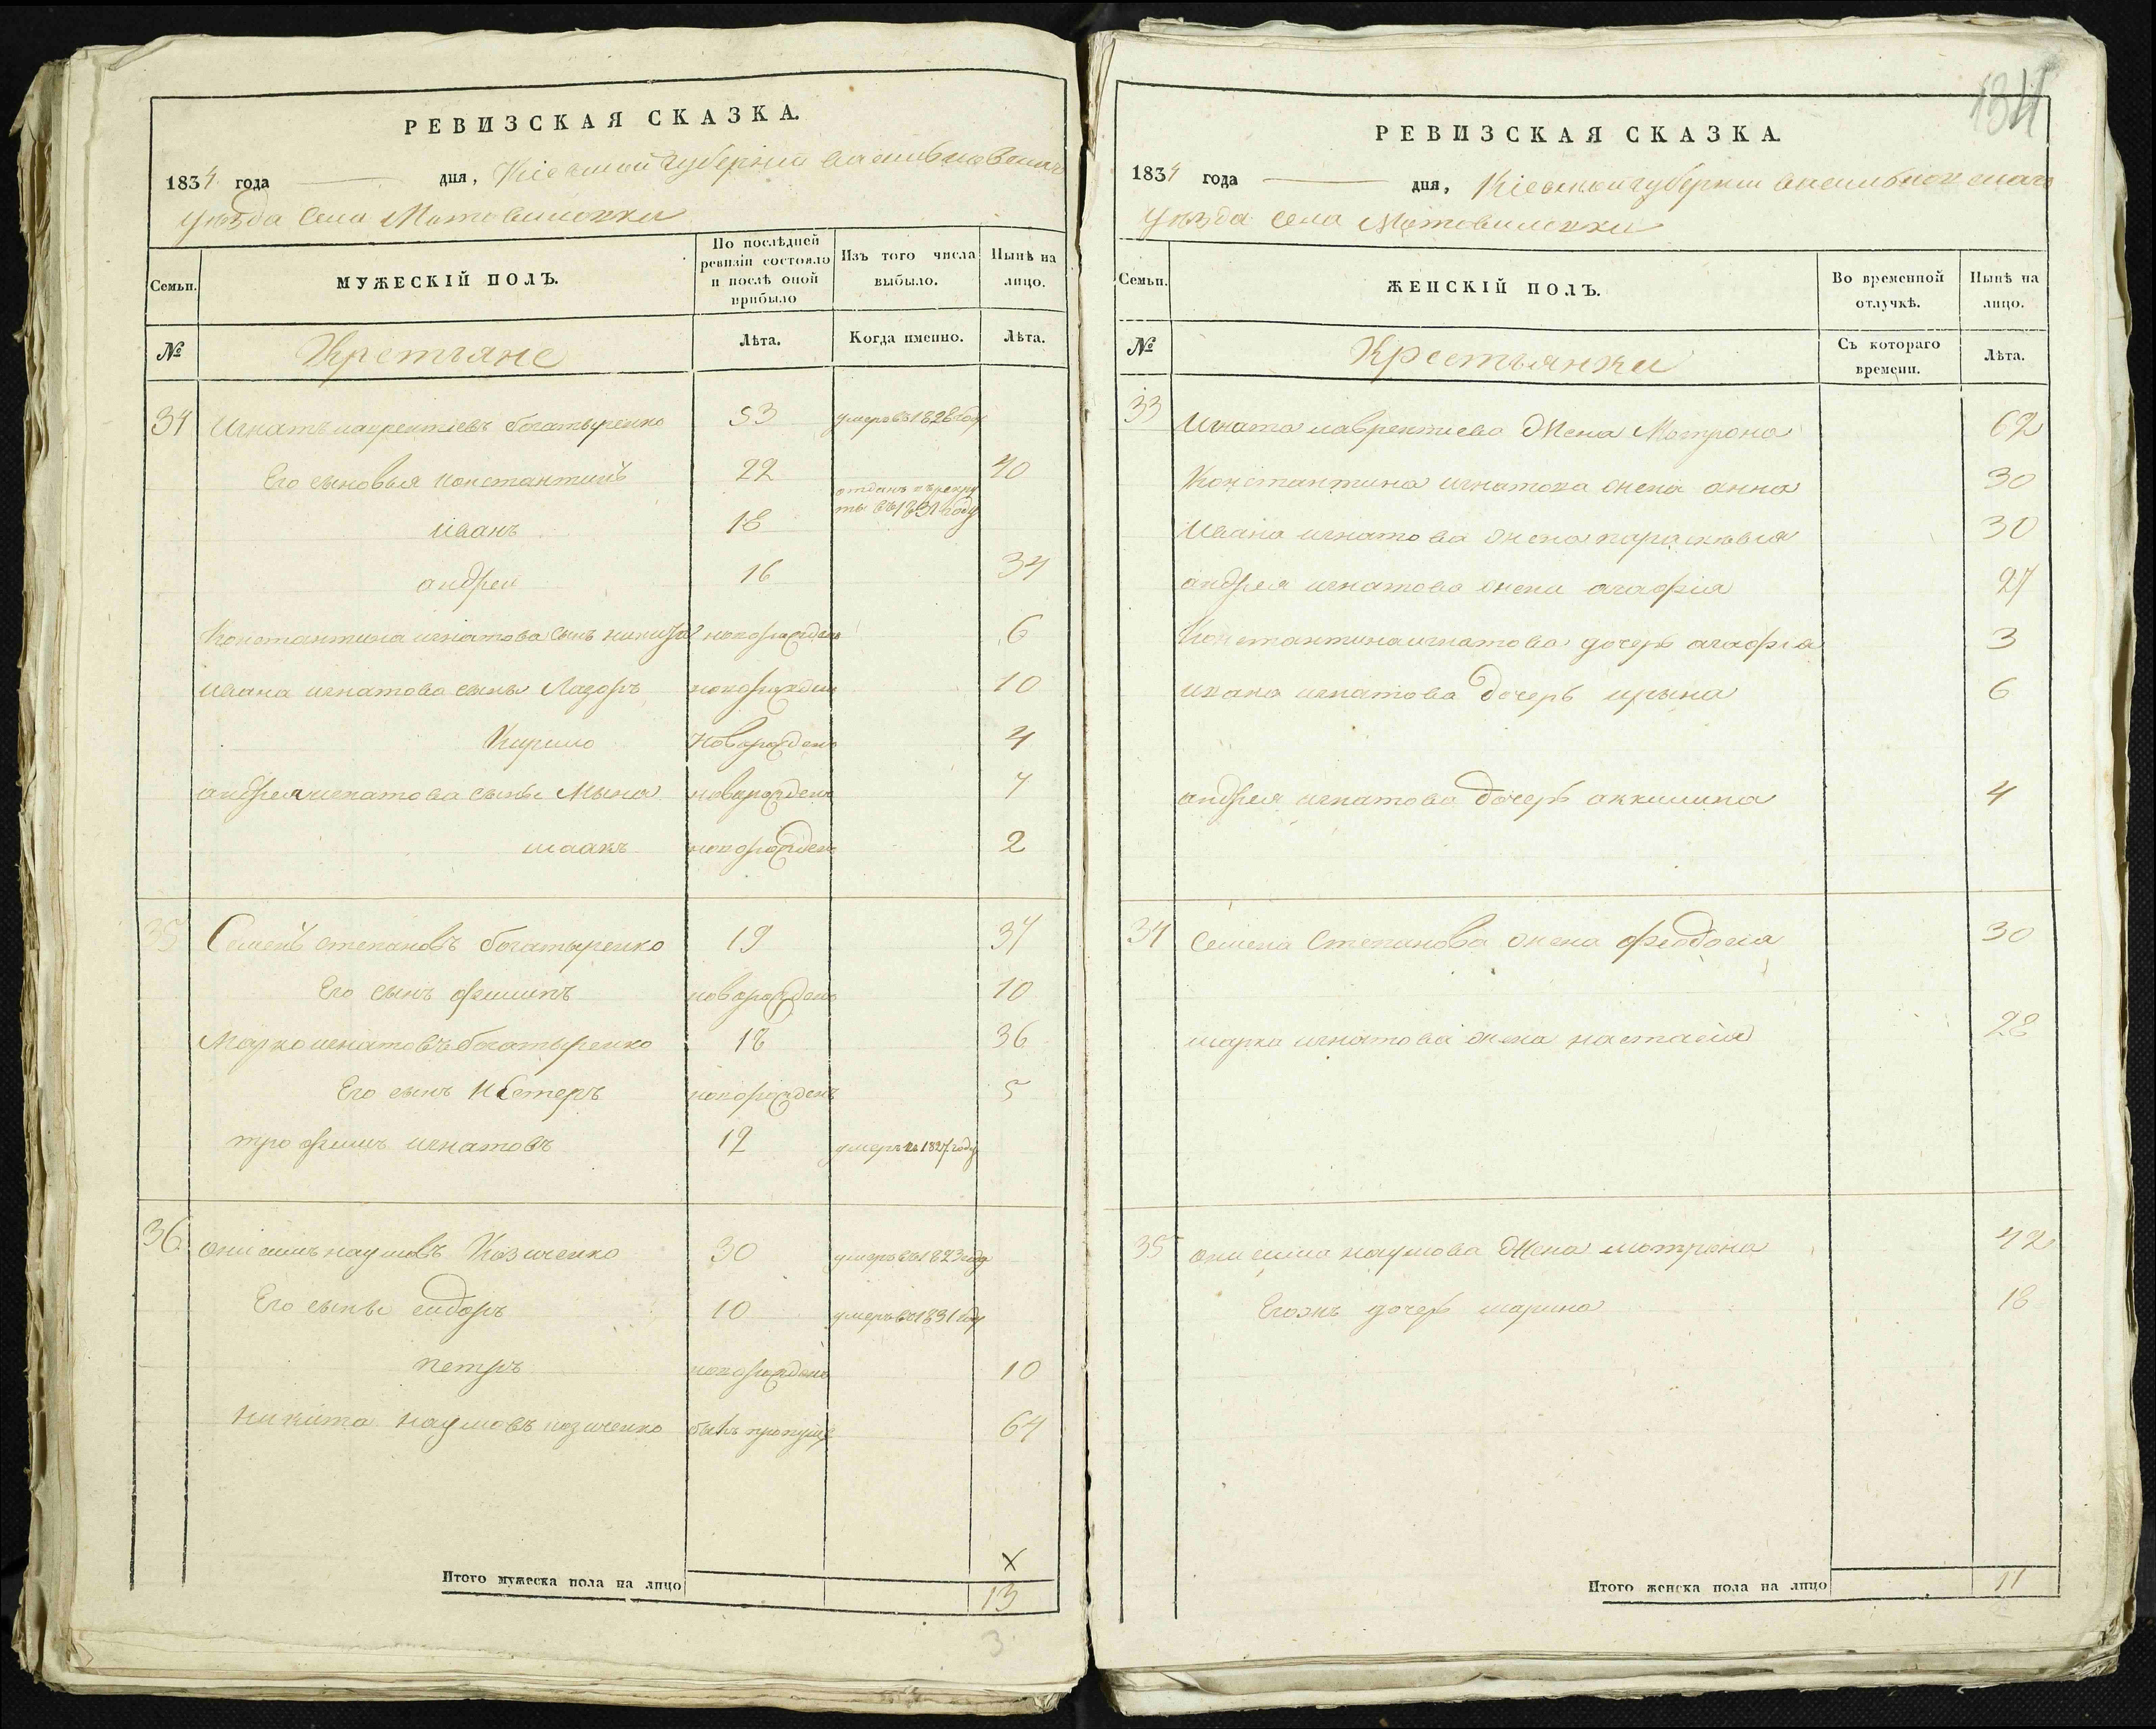 РЕВИЗСКАЯ СКАЗКА.
1834 года дня, Кіевской губерніи Васильковскаго
уѣзда села Мотовиловки
Семьи.
МУЖЕСКІЙ ПОЛЪ.
По послѣдней ревизіи состояло и послѣ оной прибыло
Изъ того числа выбыло.
Нынѣ на лицо.
№
Крестяне
Лѣта.
Когда именно.
Лѣта.
34 Игнатъ лаврентіевъ богатыренко 53 умеръ въ 1828 году
Его сыновья константинъ 22 40
иванъ 18 отданъ въ рекруты въ 1831 году
андрей 16 34
Константина игнатова сынъ никита новорожденъ 6
ивана игнатова сыны Лазоръ новорожденъ 10
Кирило новорожденъ 4
андрея игнатова сыны Мына новорожденъ 7
исаакъ новорожденъ 2
35 Семенъ степановъ богатыренко 19 37
Его сынъ филипъ новорожденъ 10
Марко игнатовъ богатыренко 18 36
Его сынъ Нестеръ новорожденъ 5
трофимъ игнатовъ 12 умеръ в 1827 году
36 онисимъ наумовъ Козиченко 30 умеръ въ 1823 году
Его сыны сидоръ 10 умеръ въ 1831 году
петръ новорожденъ 10
никита наумовъ козиченко былъ пропущ 64
Итого мужеска пола на лицо
х
13
3
134
РЕВИЗСКАЯ СКАЗКА.
1834 года дня, Кіевской губерніи васильковскаго
уѣзда села Мотовиловки
Семьи.
ЖЕНСКІЙ ПОЛЪ.
Во временной отлучкѣ.
Нынѣ на лицо.
№
Крестьянки
Съ котораго времени.
Лѣта.
33 Игната лаврентиева жена Мотрона 62
Константина игнатова жена анна 30
Ивана игнатова жена параскѣвія 30
андрея игнатова жена агафія 27
Константина игнатова дочерь агафія 3
ивана игнатова дочерь ирына 6
андрея игнатова дочерь аккилина 4
34 семена степанова жена феодосія 30
марка игнатова жена настасія 28
35 онисима наумова жена мотрона 42
Егожъ дочерь марина 18
Итого женска пола на лицо 11